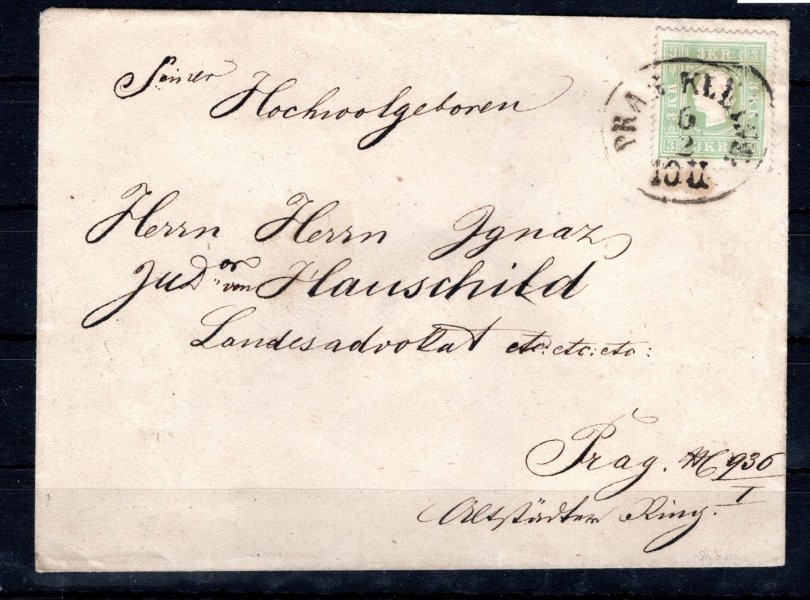 Seiner
Hochwolgeboren
Herrn Herrn Ignaz
JUDor von Hauschild
Landesadvokat etc: etc: etc:
Prag. № 936
I
Altstädter Ring.
3 KR
3 KR
PRAG KLEINS
6
2
10 U